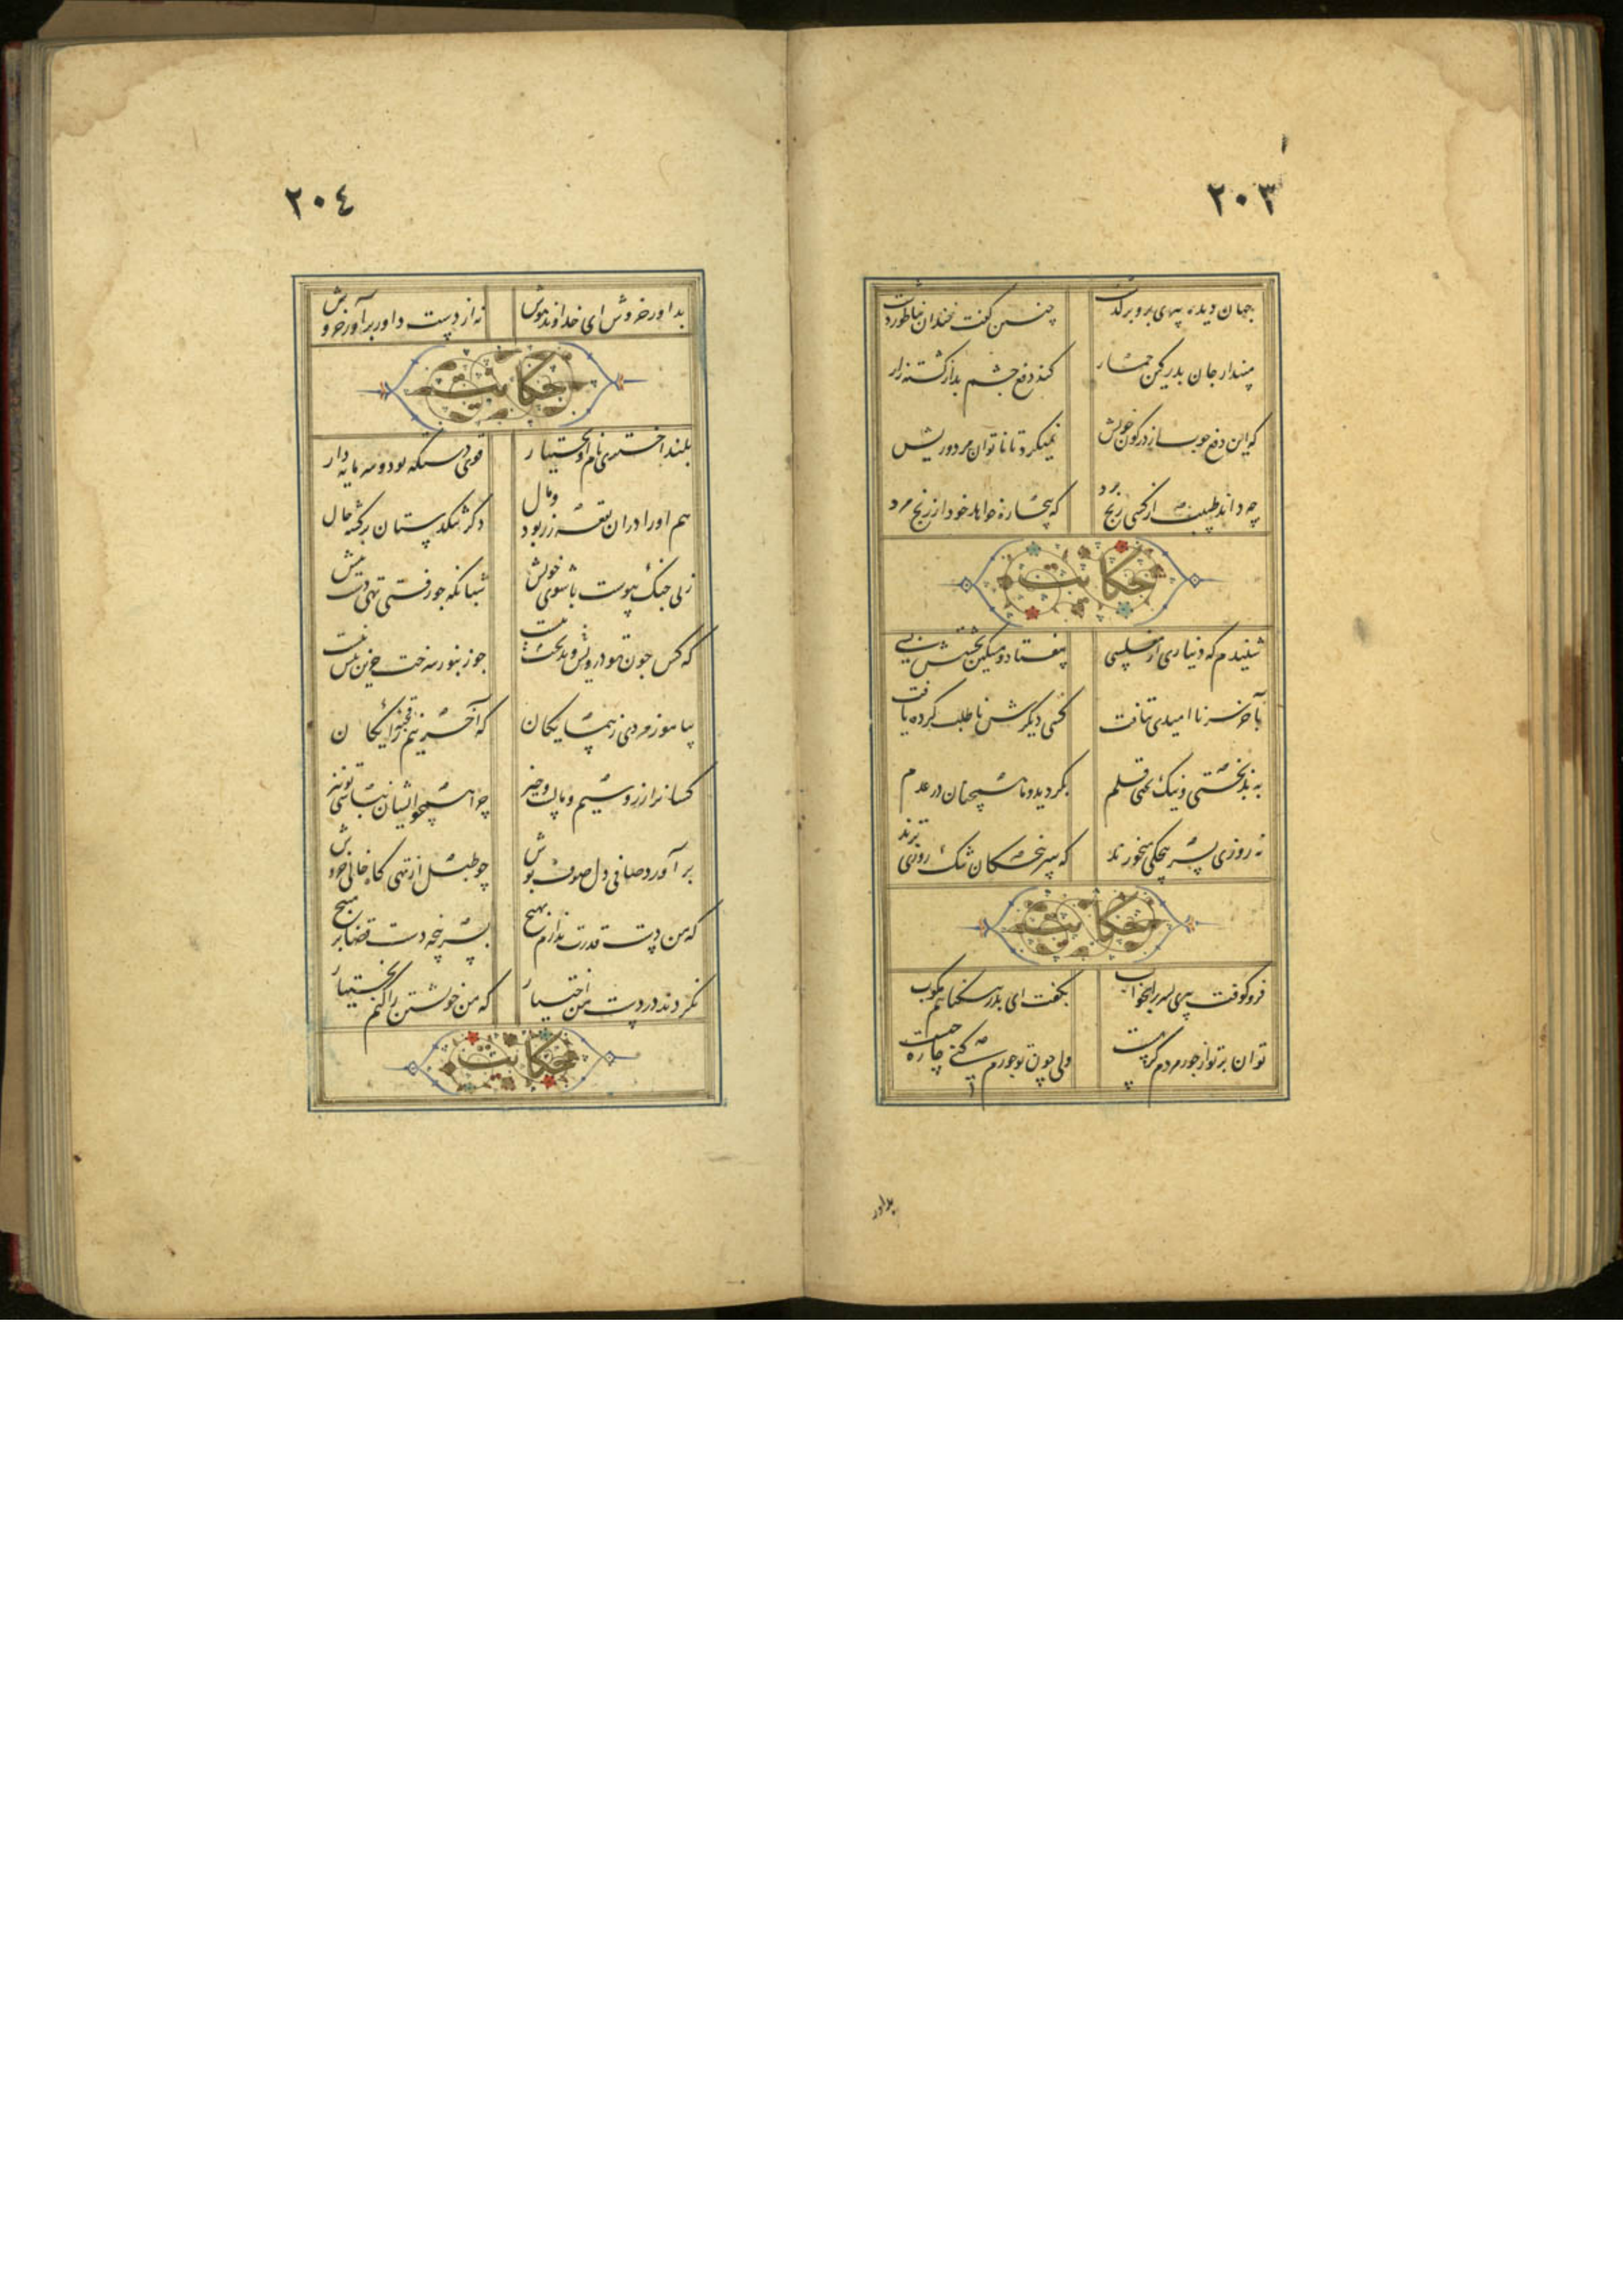 ۲۰۳
جهان دیده پیری برو برگذشت چنین گفت خندان بناطور دشت
مپندار جان پدر کین حمار کند دفع چشم بد از کشت زار
که این دفع چوب از سر و کون خویش نمیکرد تا ناتوان مرد و ریش
چه داند طبیب از کسی رنج برد که بیچاره خواهد خود از رنج مرد
حکایت
شنیدم که دیناری از مفلسی بیفتاد و مسکین بجستش بسی
بآخر سر ناامیدی بتافت کسی دیگرش ناطلب کرده یافت
به بدبختی و نیک بختی قلم بگردید و ما همچنان در عدم
نه روزی بسرپنجگی میخورند که سرپنجگان تنگ روزی ترند
حکایت
فرو کوفت پیری پسر را بچوب بگفت ای پدر بیگناهم مکوب
توان بر تو از جور مردم گریست ولی چون تو جورم کنی چاره چیست
بداور
۲۰٤
بداور خروش ای خداوند هوش نه از دست داور برآور خروش
حکایت
بلند اختری نام او بختیار قوی دستگه بود و سرمایه دار
هم او را در آن بقعه زر بود و مال دگر تنگدستان برگشته حال
زنی جنگ پیوست با شوی خویش شبانگه چو رفتی تهی دست پیش
که کس چون تو درویش و بدبخت نیست چو زنبور سرخت جز این نیش نیست
بیاموز مردی ز همسایگان که آخر نیم قحبهٔ رایگان
کسانرا زر و سیم و مالست و چیز چرا همچو ایشان نباشی تو نیز
برآورد صافی دل صوف پوش چو طبل از تهی گاه خالی خروش
که من دست قدرت ندارم بهیچ بسرپنجه دست قضا بر مپیچ
نکردند در دست من اختیار که من خویشتن را کنم بختیار
حکایت